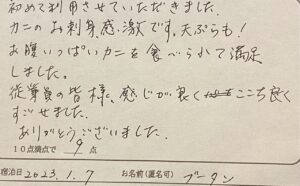 初めて利用させていただきました.
カニのお刺身感激です。天ぷらも!
お腹いっぱいカニを食べられて満足
しました。
従業員の皆様、感じが良く ここち良く
すごせました.
ありがとうございました.
10点満点で 9 点
宿泊日 2023.1.7 お名前(匿名可) ブータン